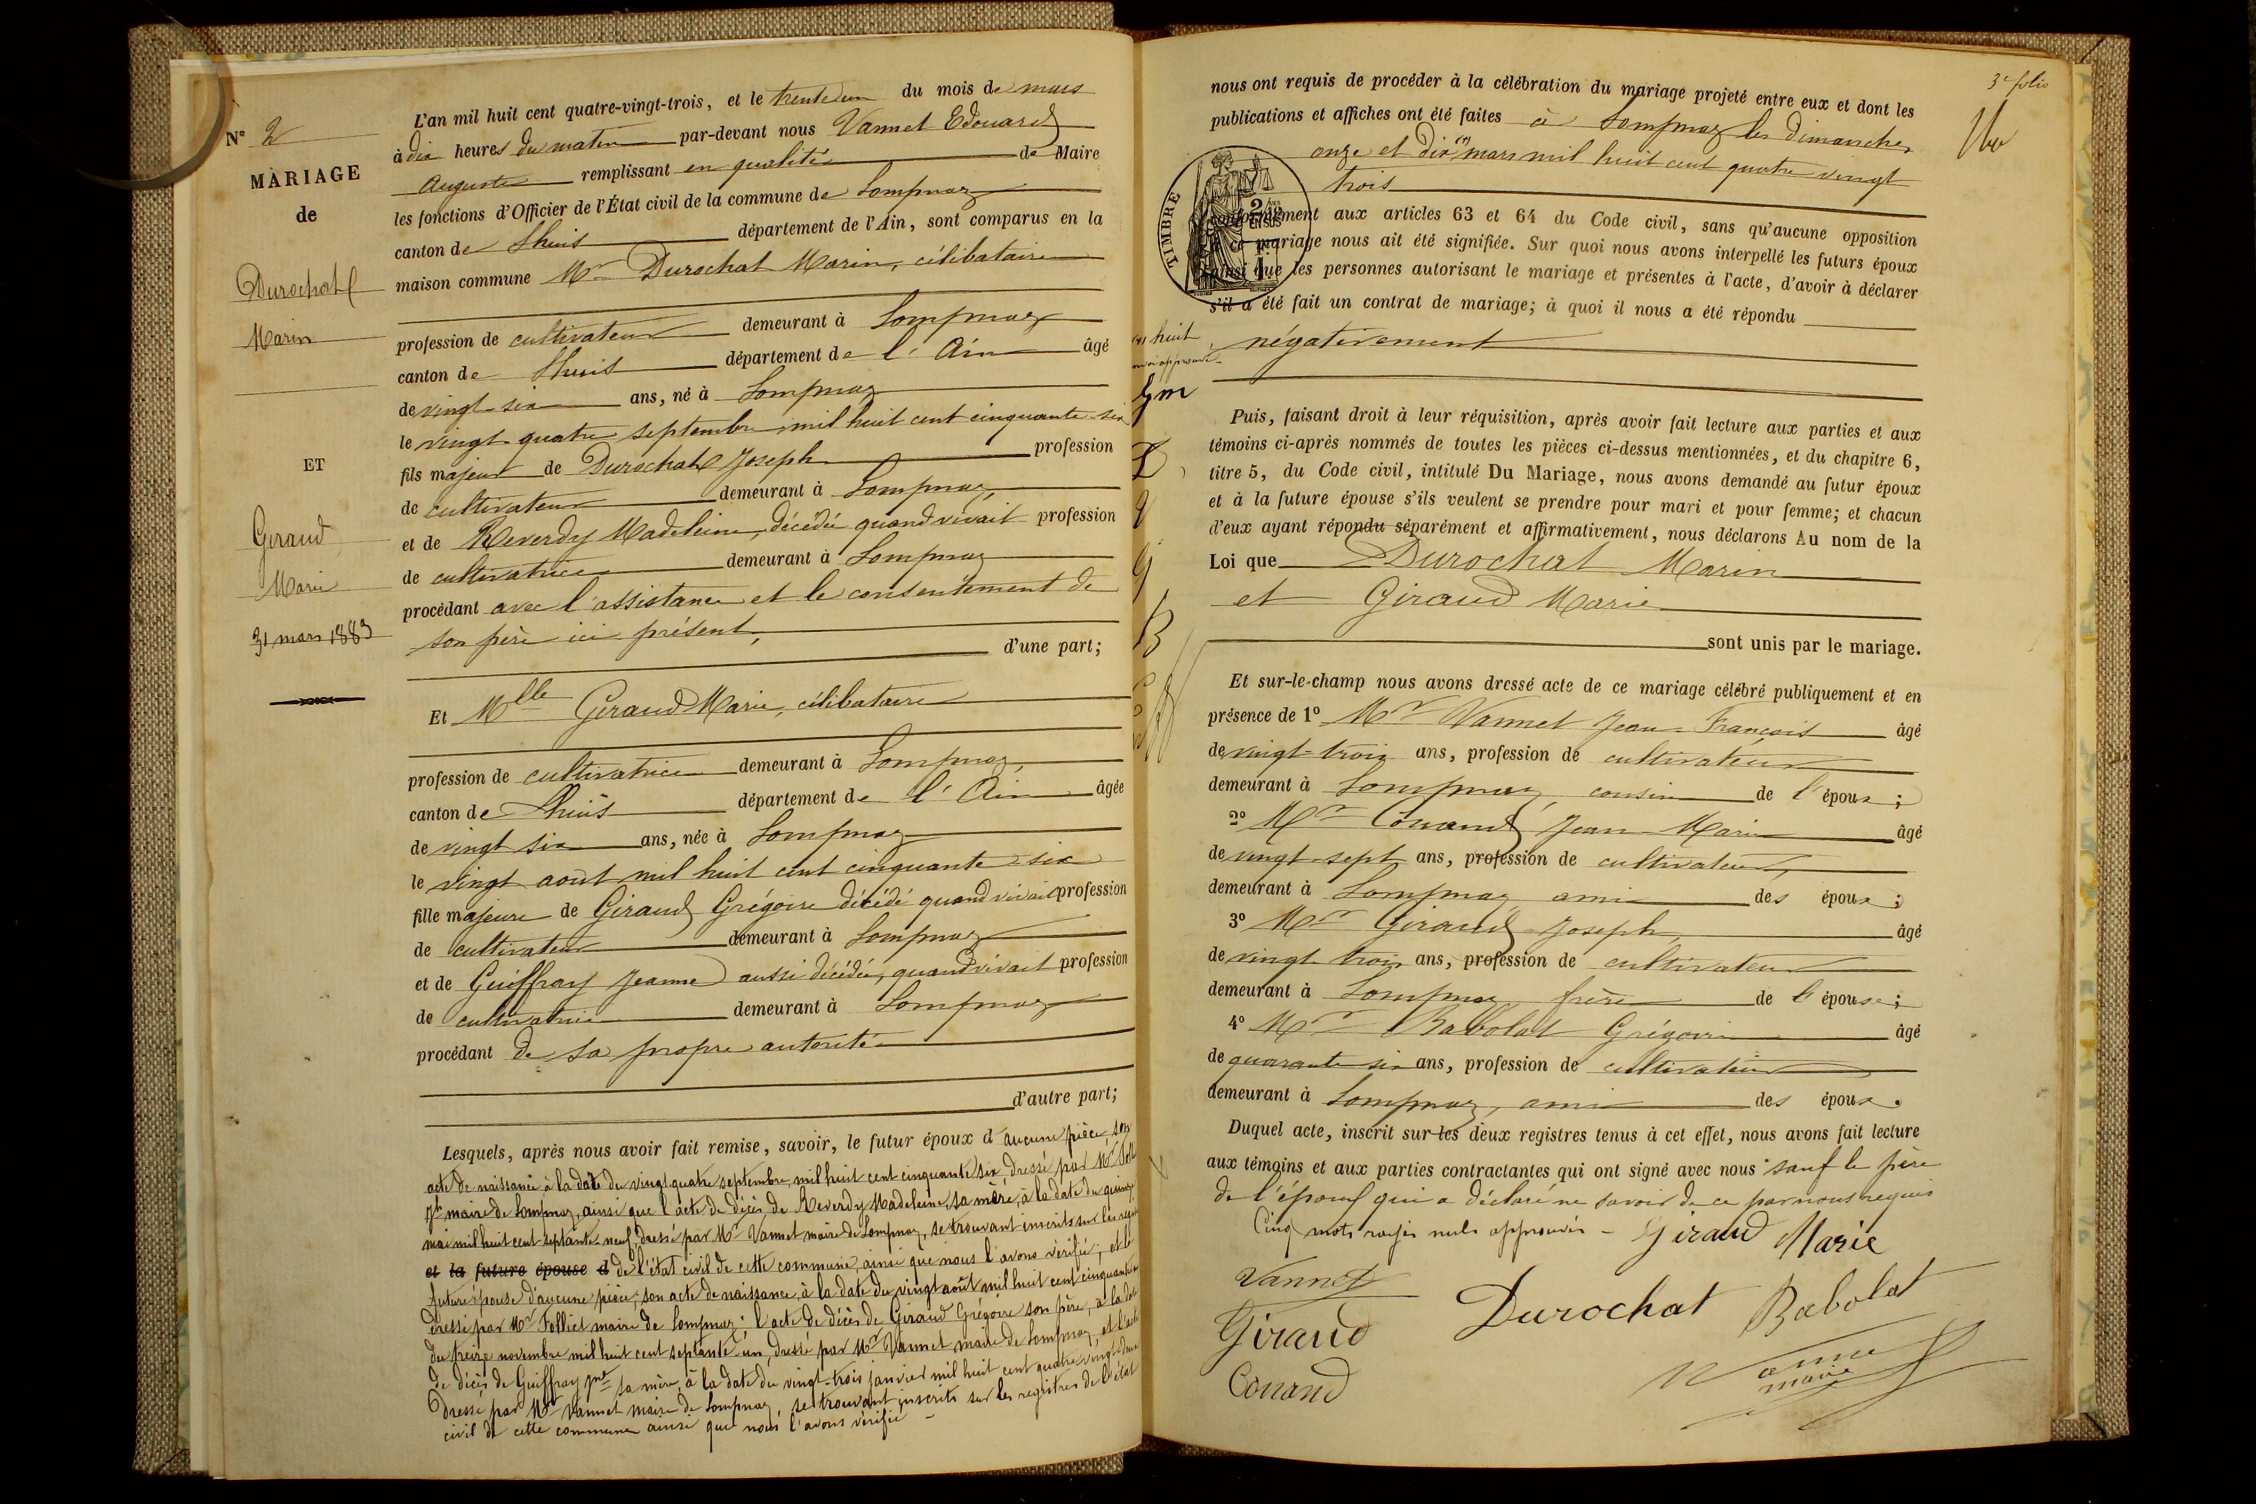 N° 2
MARIAGE
de
Durochat
Marin
ET
Giraud
Marie
31 mars 1883
L'an mil huit cent quatre-vingt-trois, et le trente un du mois de mars
à dix heures du matin par-devant nous Vannet Edouard
Auguste remplissant en qualité de Maire
les fonctions d'Officier de l'État civil de la commune de Lompnaz
canton de Lhuis département de l'Ain, sont comparus en la
maison commune Mr Durochat Marin, célibataire
profession de cultivateur demeurant à Lompnaz
canton de Lhuis département de l'Ain âgé
de vingt-six ans, né à Lompnaz
le vingt quatre septembre mil huit cent cinquante-six
fils majeur de Durochat Joseph profession
de cultivateur demeurant à Lompnaz,
et de Reverdy Madeleine, décédée quand vivait profession
de cultivatrice demeurant à Lompnaz
procédant avec l'assistance et le consentement de
son père ici présent, d'une part;
Et Mlle Giraud Marie, célibataire
profession de cultivatrice demeurant à Lompnaz,
canton de Lhuis département de l'Ain âgée
de vingt six ans, née à Lompnaz
le vingt août mil huit cent cinquante-six
fille majeure de Giraud Grégoire décédé quand vivait profession
de cultivateur demeurant à Lompnaz
et de Guiffray Jeanne aussi décédée, quand vivait profession
de cultivatrice demeurant à Lompnaz
procédant de sa propre autorité
d'autre part;
Lesquels, après nous avoir fait remise, savoir, le futur époux d'aucune pièce, son
acte de naissance à la date du vingt quatre septembre mil huit cent cinquante six dressé par Mr
maire de Lompnaz, ainsi que l'acte de décès de Reverdy Madeleine, sa mère, à la date du quinze
mai mil huit cent septante-neuf, dressé par Mr Vannet maire de Lompnaz, se trouvant inscrits sur les
et la future épouse d de l'état civil de cette commune, ainsi que nous l'avons vérifié; et la
future épouse d'aucune pièce; son acte de naissance, à la date du vingt août mil huit cent cinquante
dressé par Mr Folliet maire de Lompnaz; l'acte de décès de Giraud Grégoire son père, à la date
du treize novembre mil huit cent septante-un, dressé par Mr Vannet maire de Lompnaz, et l'acte
de décès de Guiffray Jne sa mère, à la date du vingt-trois janvier mil huit cent quatre vingt
dressé par Mr Vannet maire de Lompnaz, se trouvant inscrits sur les registres de l'état
civil de cette commune ainsi que nous l'avons vérifié
3e folio
nous ont requis de procéder à la célébration du mariage projeté entre eux et dont les
publications et affiches ont été faites à Lompnaz les dimanches
onze et dix (1) mars mil huit cent quatre vingt
trois
TIMBRE
2/10es EN SUS
1f
conformément aux articles 63 et 64 du Code civil, sans qu'aucune opposition
à ce mariage nous ait été signifiée. Sur quoi nous avons interpellé les futurs époux
ainsi que les personnes autorisant le mariage et présentes à l'acte, d'avoir à déclarer
s'il a été fait un contrat de mariage; à quoi il nous a été répondu
(1) huit
négativement
Puis, faisant droit à leur réquisition, après avoir fait lecture aux parties et aux
témoins ci-après nommés de toutes les pièces ci-dessus mentionnées, et du chapitre 6,
titre 5, du Code civil, intitulé Du Mariage, nous avons demandé au futur époux
et à la future épouse s'ils veulent se prendre pour mari et pour femme; et chacun
d'eux ayant répondu séparément et affirmativement, nous déclarons Au nom de la
Loi que Durochat Marin
et Giraud Marie
sont unis par le mariage.
Et sur-le-champ nous avons dressé acte de ce mariage célébré publiquement et en
présence de 1° Mr Vannet Jean-François âgé
de vingt-trois ans, profession de cultivateur
demeurant à Lompnaz, cousin de l'époux;
2° Mr Conand Jean Marie âgé
de vingt-sept ans, profession de cultivateur,
demeurant à Lompnaz ami des époux;
3° Mr Giraud Joseph âgé
de vingt trois ans, profession de cultivateur
demeurant à Lompnaz frère de l'épouse;
4° Mr Babolat Grégoire âgé
de quarante six ans, profession de cultivateur
demeurant à Lompnaz, ami des époux.
Duquel acte, inscrit sur les deux registres tenus à cet effet, nous avons fait lecture
aux témoins et aux parties contractantes qui ont signé avec nous sauf le père
de l'époux qui a déclaré ne savoir de ce par nous requis
Cinq mots rayés nuls approuvés - Giraud Marie
Vannet
Durochat Babolat
Giraud
Conand
maire